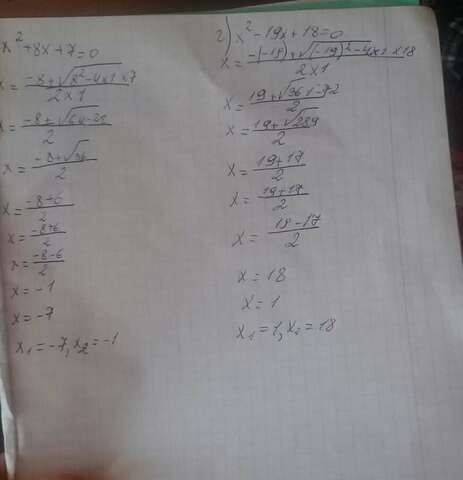 x² + 8x + 7 = 0
x = (-8 + √(8² - 4x1x7)) / (2x1)
x = (-8 + √(64-28)) / 2
x = (-8 + √36) / 2
x = (-8+6) / 2
x = (-8+6) / 2
x = (-8-6) / 2
x = -1
x = -7
x₁ = -7, x₂ = -1
г) x² - 19x + 18 = 0
x = (-(-19) + √((-19)² - 4x1x18)) / (2x1)
x = (19 + √361-72) / 2
x = (19 + √289) / 2
x = (19+17) / 2
x = (19+17) / 2
x = (18-17) / 2
x = 18
x = 1
x₁ = 1, x₂ = 18